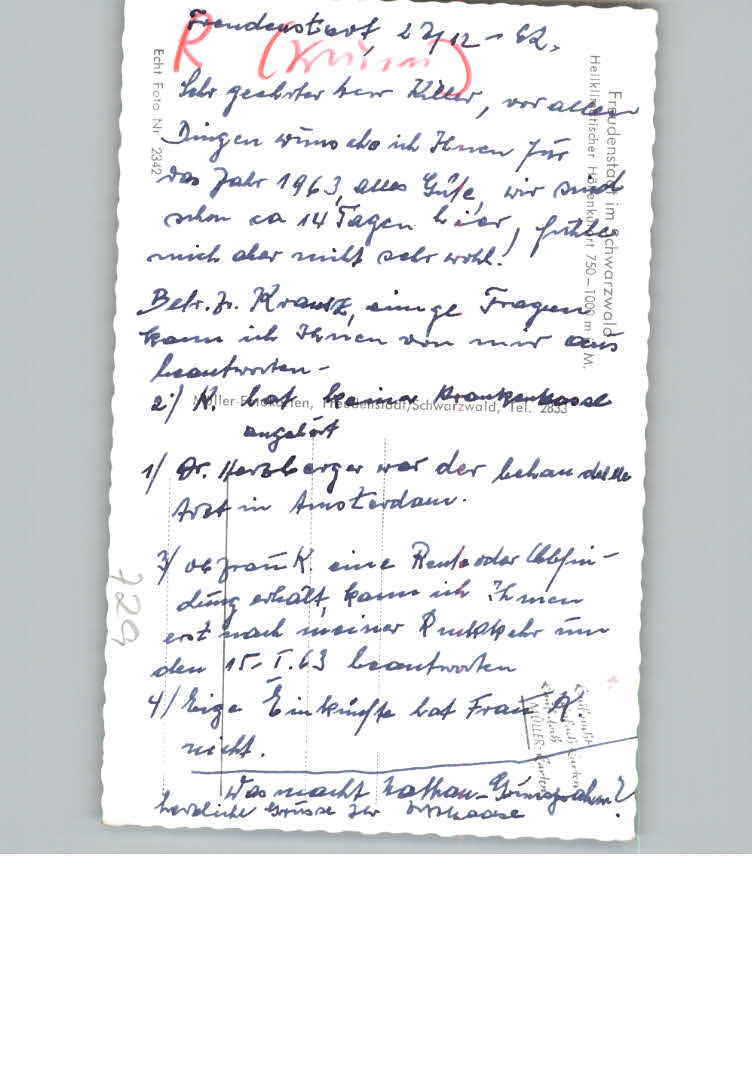 Freudenstadt, 27/12 - 62.
R (Krausz)
Sehr geehrter Herr Killer, vor allen
Dingen wünsche ich Ihnen für
das Jahr 1963, alles Gute, wir sind
schon ca 14 Tagen hier, fühle
mich aber nicht sehr wohl!
Betr. Fr. Krausz, einige Fragen
kann ich Ihnen von mir aus
beantworten -
2/ K. hat keiner Krankenkasse
angehört
1/ Dr. Herzberger war der behandelnde
Arzt in Amsterdam.
3/ ob Frau K. eine Rente oder Abfin-
dung erhält, kann ich Ihnen
erst nach meiner Rückkehr um
den 15. I. 63 beantworten
4/ Eige Einkünfte hat Frau K.
nicht.
Was macht Nathan-
herzliche Grüsse Ihr
729
Echt Foto Nr. 2342
Freudenstadt im Schwarzwald
Heilklimatischer Höhenkurort 750-1000 m ü. M.
Müller-Fotokarten, Freudenstadt/Schwarzwald, Tel. 2833
MÜLLER-Karten